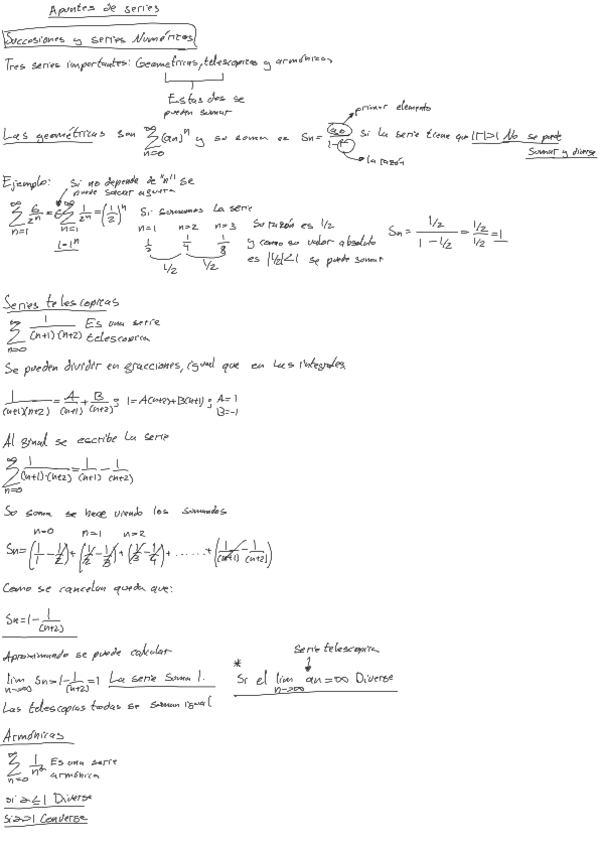 Apuntes de series
Sucesiones y series Numéricas
Tres series importantes: Geométricas, telescopicas y armónicas
Estas dos se
pueden sumar
primer elemento
Las geométricas son ∞ Σ n=0 (an)^n y su suma es Sn = a0/(1-r) si la serie tiene que |r|>1 No se puede
Sumar y diverge
la razón
Ejemplo: Si no depende de "n" se
puede sacar a fuera
∞ Σ n=1 6/2^n = 6 ∞ Σ n=1 1/2^n = (1/2)^n Si sumamos la serie
1=1^n
n=1 n=2 n=3 Su razón es 1/2
1/2 1/4 1/8 y como su valor absoluto
1/2 1/2 es |1/2|<1 se puede sumar
Sn = (1/2)/(1-1/2) = (1/2)/(1/2) = 1
Series telescopicas
∞ Σ n=0 1/((n+1)·(n+2)) Es una serie
telescopica
Se pueden dividir en fracciones, igual que en las integrales
1/((n+1)(n+2)) = A/(n+1) + B/(n+2); 1=A(n+2)+B(n+1); A=1
B=-1
Al final se escribe la serie
∞ Σ n=0 1/((n+1)·(n+2)) = 1/(n+1) - 1/(n+2)
Su suma se hace viendo los sumandos
n=0 n=1 n=2
Sn = (1/1 - 1/2) + (1/2 - 1/3) + (1/3 - 1/4) + ...... + (1/(n+1) - 1/(n+2))
Como se cancelan queda que:
Sn = 1 - 1/(n+2)
Aproximando se puede calcular
lim n→∞ Sn = 1 - 1/(n+2) = 1 La serie suma 1.
Serie telescopica
* Si el lim n→∞ an = ∞ Diverge
Las telescopias todas se suman igual
Armónicas
∞ Σ n=0 1/n^a Es una serie
armónica
si a≤1 Diverge
Si a>1 Converge